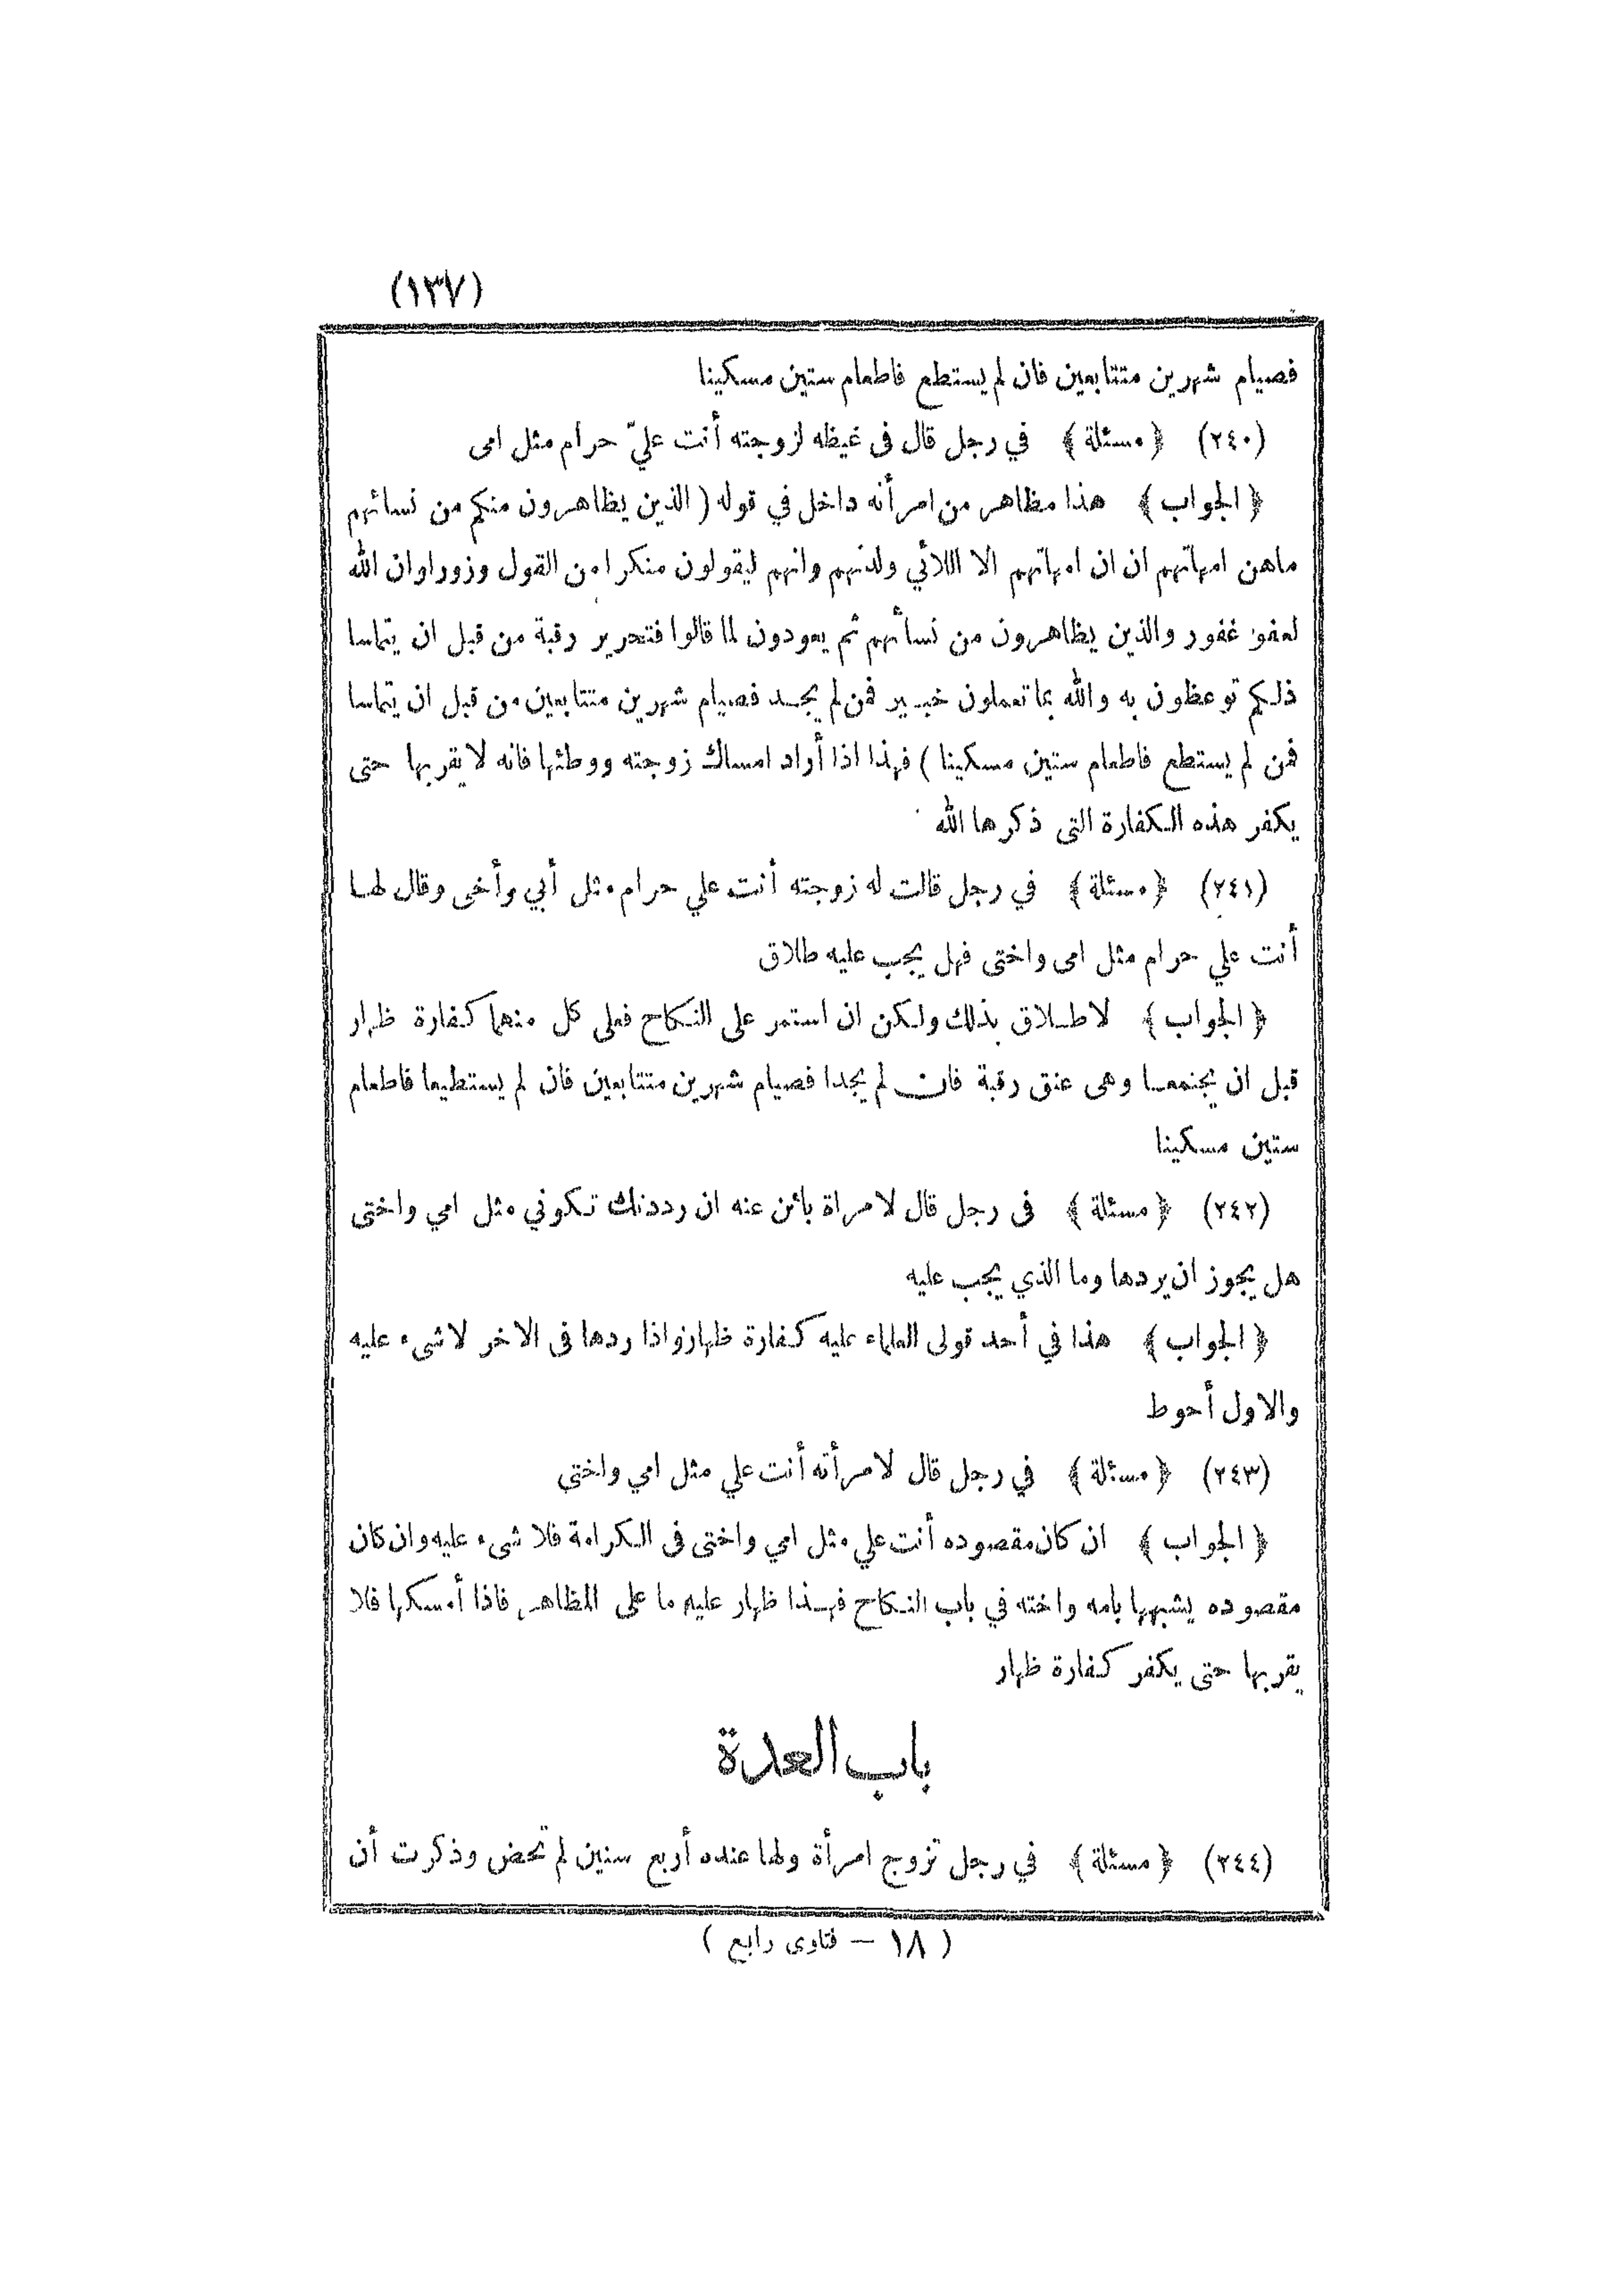 (١٣٧)
فصيام شهرين متتابعين فان لم يستطع فاطعام ستين مسكينا
(٢٤٠) ﴿ مسئلة ﴾ في رجل قال فى غيظه لزوجته أنت عليّ حرام مثل امى
﴿ الجواب ﴾ هذا مظاهر من امرأته داخل في قوله ( الذين يظاهرون منكم من نسائهم
ماهن امهاتهم ان امهاتهم الا اللائي ولدنهم وانهم ليقولون منكرا من القول وزورا وان الله
لعفو غفور والذين يظاهرون من نسائهم ثم يعودون لما قالوا فتحرير رقبة من قبل ان يتماسا
ذلكم توعظون به والله بما تعملون خبير فمن لم يجد فصيام شهرين متتابعين من قبل ان يتماسا
فمن لم يستطع فاطعام ستين مسكينا ) فهذا اذا أراد امساك زوجته ووطئها فانه لا يقربها حتى
يكفر هذه الكفارة التى ذكرها الله
(٢٤١) ﴿ مسئلة ﴾ في رجل قالت له زوجته أنت علي حرام مثل أبي وأخى وقال لها
أنت علي حرام مثل امى واختى فهل يجب عليه طلاق
﴿ الجواب ﴾ لا طلاق بذلك ولكن ان استمر على النكاح فعلى كل منهما كفارة ظهار
قبل ان يجتمعا وهى عتق رقبة فان لم يجدا فصيام شهرين متتابعين فان لم يستطيعا فاطعام
ستين مسكينا
(٢٤٢) ﴿ مسئلة ﴾ فى رجل قال لامراة بائن عنه ان رددتك تكوني مثل امي واختى
هل يجوز ان يردها وما الذي يجب عليه
﴿ الجواب ﴾ هذا في أحد قولى العلماء عليه كفارة ظهار واذا ردها فى الاخر لا شىء عليه
والاول أحوط
(٢٤٣) ﴿ مسئلة ﴾ في رجل قال لامرأته أنت علي مثل امي واختى
﴿ الجواب ﴾ ان كان مقصوده أنت علي مثل امي واختى فى الكرامة فلا شىء عليه وان كان
مقصوده يشبهها بامه واخته في باب النكاح فهذا ظهار عليه ما على المظاهر فاذا أمسكها فلا
يقربها حتى يكفر كفارة ظهار
باب العدة
(٢٤٤) ﴿ مسئلة ﴾ في رجل تزوج امرأة ولها عنده أربع سنين لم تحض وذكرت أن
( ١٨ — فتاوى رابع )